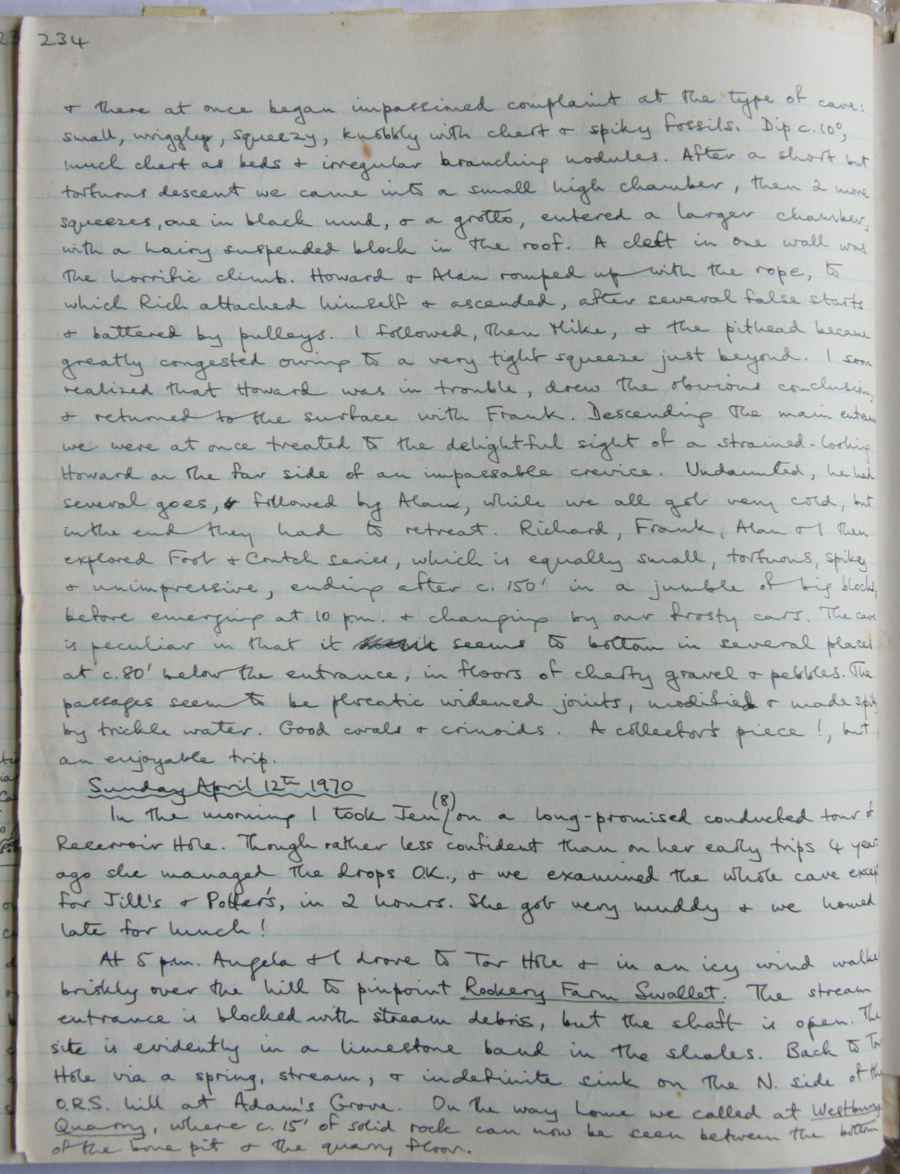 234
+ there at once began impassioned complaint at the type of cave:
small, wriggly, squeezy, knobbly with chert + spiky fossils. Dip c.10°,
much chert as beds + irregular branching nodules. After a short but
tortuous descent we came into a small high chamber, then 2 more
squeezes, one in black mud, + a grotto, entered a larger chamber,
with a hairy suspended block in the roof. A cleft in one wall was
the horrific climb. Howard + Alan romped up with the rope, to
which Rich attached himself + ascended, after several false starts
+ battered by pulleys. I followed, then Mike, + the pithead became
greatly congested owing to a very tight squeeze just beyond. I soon
realized that Howard was in trouble, drew the obvious conclusion,
+ returned to the surface with Frank. Descending the main
we were at once treated to the delightful sight of a strained-looking
Howard on the far side of an impassable crevice. Undaunted, he had
several goes, followed by Alan, while we all got very cold, but
in the end they had to retreat. Richard, Frank, Alan + I then
explored Foot + Crutch series, which is equally small, tortuous, spikey
+ unimpressive, ending after c. 150' in a jumble of big blocks,
before emerging at 10 pm. + changing by our frosty cars. The cave
is peculiar in that it seems to bottom in several places
at c.80' below the entrance, in floors of cherty gravel + pebbles. The
passages seem to be phreatic widened joints, modified + made spiky
by trickle water. Good corals + crinoids. A collector's piece!, but
an enjoyable trip.
Sunday April 12th 1970
In the morning I took Jen (8) on a long-promised conducted tour of
Reservoir Hole. Though rather less confident than on her early trips 4 years
ago she managed the drops O.K., + we examined the whole cave except
for Jill's + Potter's, in 2 hours. She got very muddy + we homed
late for lunch!
At 5 pm. Angela + I drove to Tor Hole + in an icy wind walked
briskly over the hill to pinpoint Rookery Farm Swallet. The stream
entrance is blocked with stream debris, but the shaft is open. The
site is evidently in a limestone band in the shales. Back to Tor
Hole via a spring, stream, + indefinite sink on the N. side of the
O.R.S. hill at Adam's Grove. On the way home we called at Westbury
Quarry, where c. 15' of solid rock can now be seen between the bottom
of the bone pit + the quarry floor.